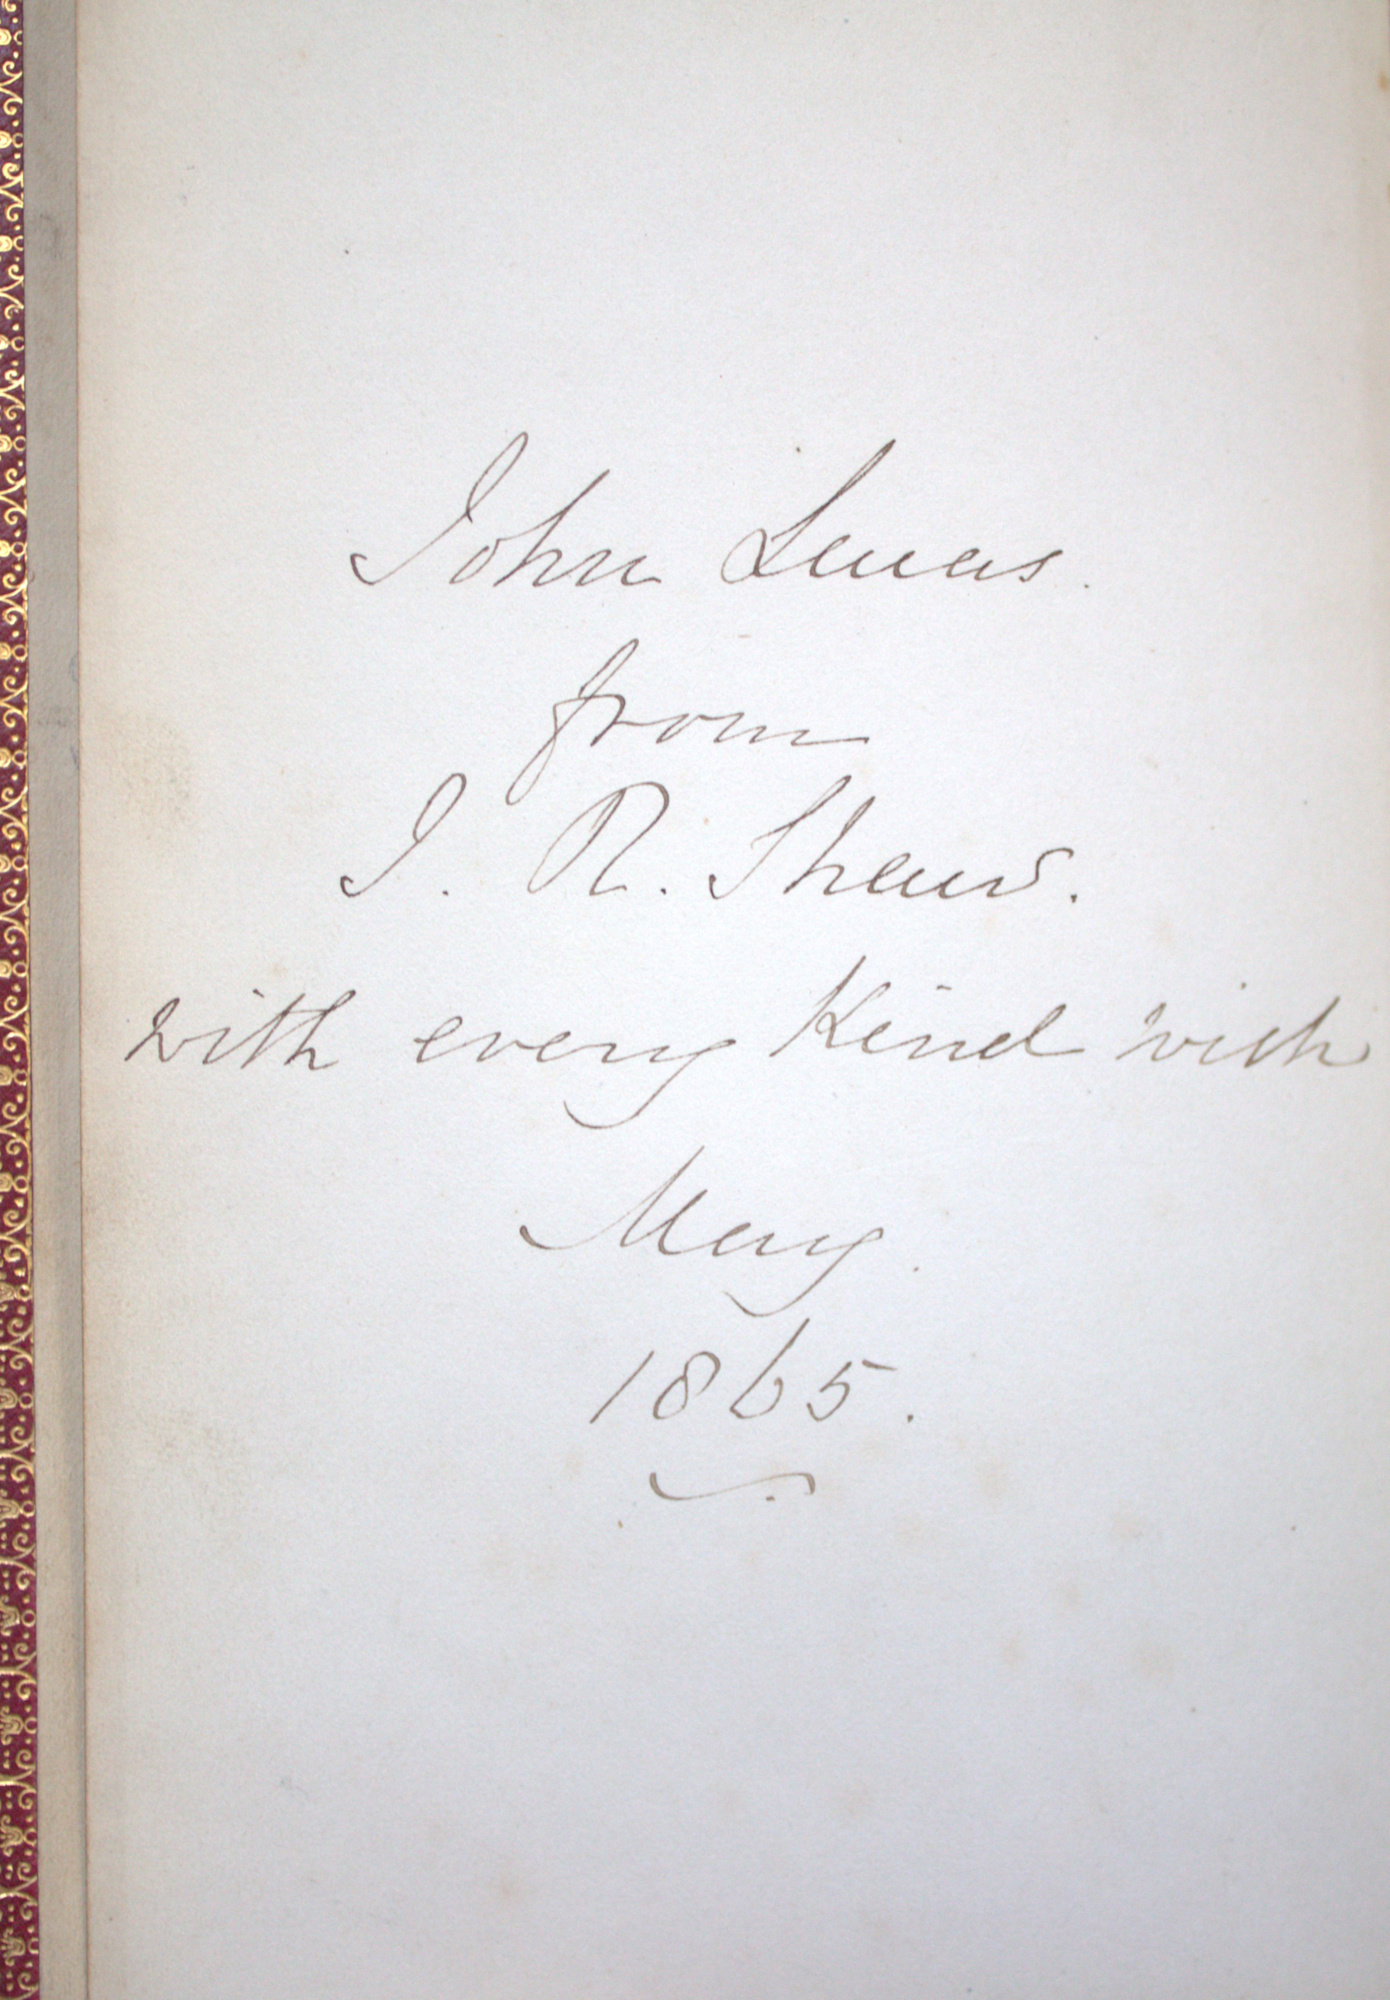 John Lucas.
from
J. R. Shaw.
with every kind wish
May.
1865.